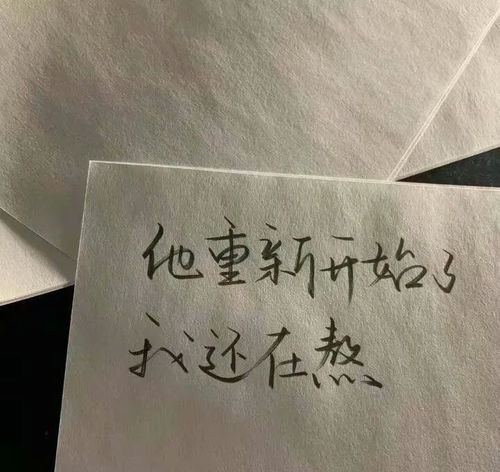 他重新开始了
我还在熬